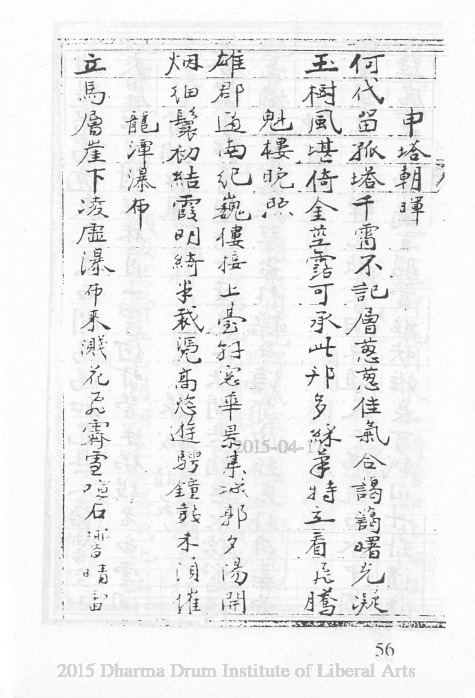 申塔朝暉
何代留孤塔千霄不記層蔥蔥佳氣合藹藹曙光凝
玉樹風堪倚金莖露可承此邦多綵筆特立看飛騰
魁樓晚照
雄郡道南紀巍樓接上臺軒窓華景集城郭夕陽開
烟細鬟初結霞明綺半裁憑高恣遊騁鐘鼓未須催
龍潭瀑布
立馬層崖下凌虛瀑布來濺花飛霽雪噴石響晴雷
2015-04-1
56
2015 Dharma Drum Institute of Liberal Arts